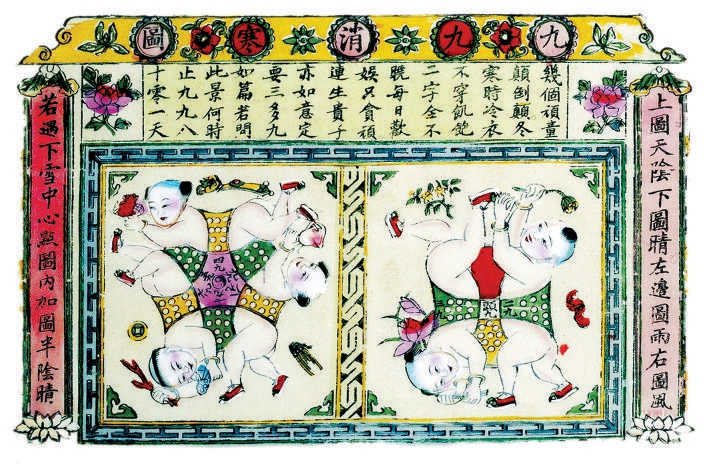 九九消寒圖
上圖天陰下圖晴左邊圖雨右圖風
幾個頑童
顛倒顛冬
寒時冷衣
不穿飢飽
二字全不
曉每日歡
娛只貪頑
連生貴子
亦如意定
要三多九
如篇若問
此景何時
止九九八
十零一天
若遇下雪中心點圖內加圖半陰晴
四九